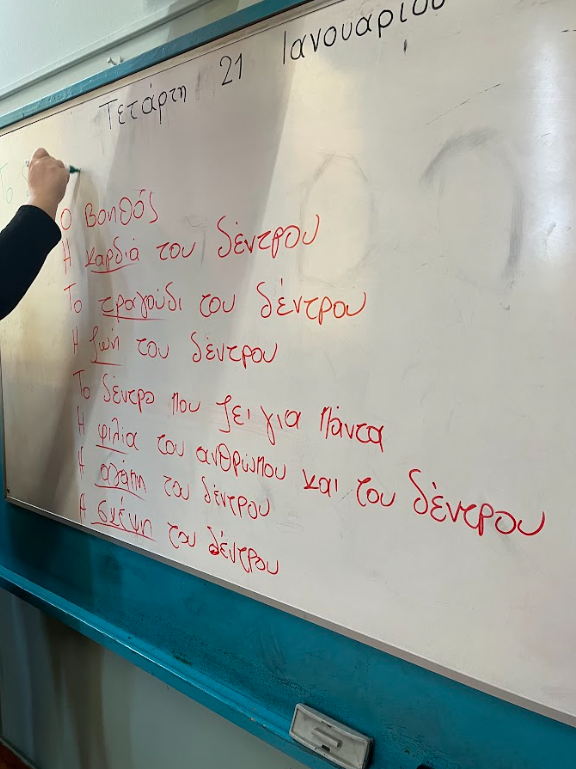 Τετάρτη 21 Ιανουαρίου
Το
Ο Βοηθός
Η καρδιά του δέντρου
Το τραγούδι του δέντρου
Η ζωή του δέντρου
Το δέντρο που ζει για πάντα
Η φιλία του ανθρώπου και του δέντρου
Η αγάπη του δέντρου
Η σκέψη του δέντρου